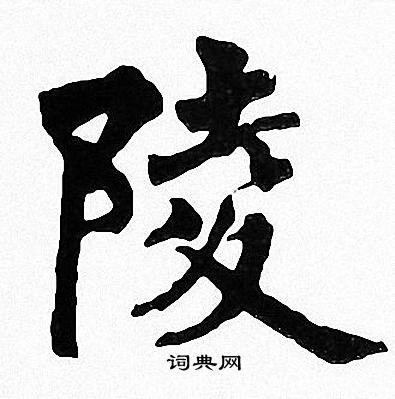 陵
词典网